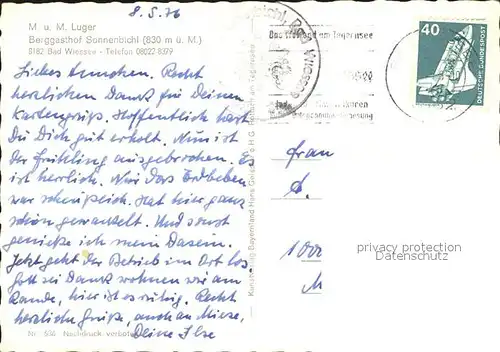 8.5.76
M u. M. Luger
Berggasthof Sonnenbichl (830 m ü. M.)
8182 Bad Wiessee - Telefon 08022/8379
Liebes Annchen. Recht
herzlichen Dank für Deinen
Kartengruß. Hoffentlich hast
Du Dich gut erholt. Nun ist
der Frühling ausgebrochen. Es
ist herrlich. Nur das Erdbeben
war scheußlich. Hat hier ganz
schön gewackelt. Und sonst
genieße ich mein Dasein.
Jetzt geht der Betrieb im Ort los.
Gott sei Dank wohnen wir am
Rande, hier ist es ruhig. Recht
herzliche Grüße, auch an Miese,
Deine Ilse
Nr. 536 Nachdruck verboten
Kunstverlag Bayernland
Das am Tegernsee
Bad Wiessee
40
DEUTSCHE BUNDESPOST
Frau
1000
privacy protection
Datenschutz